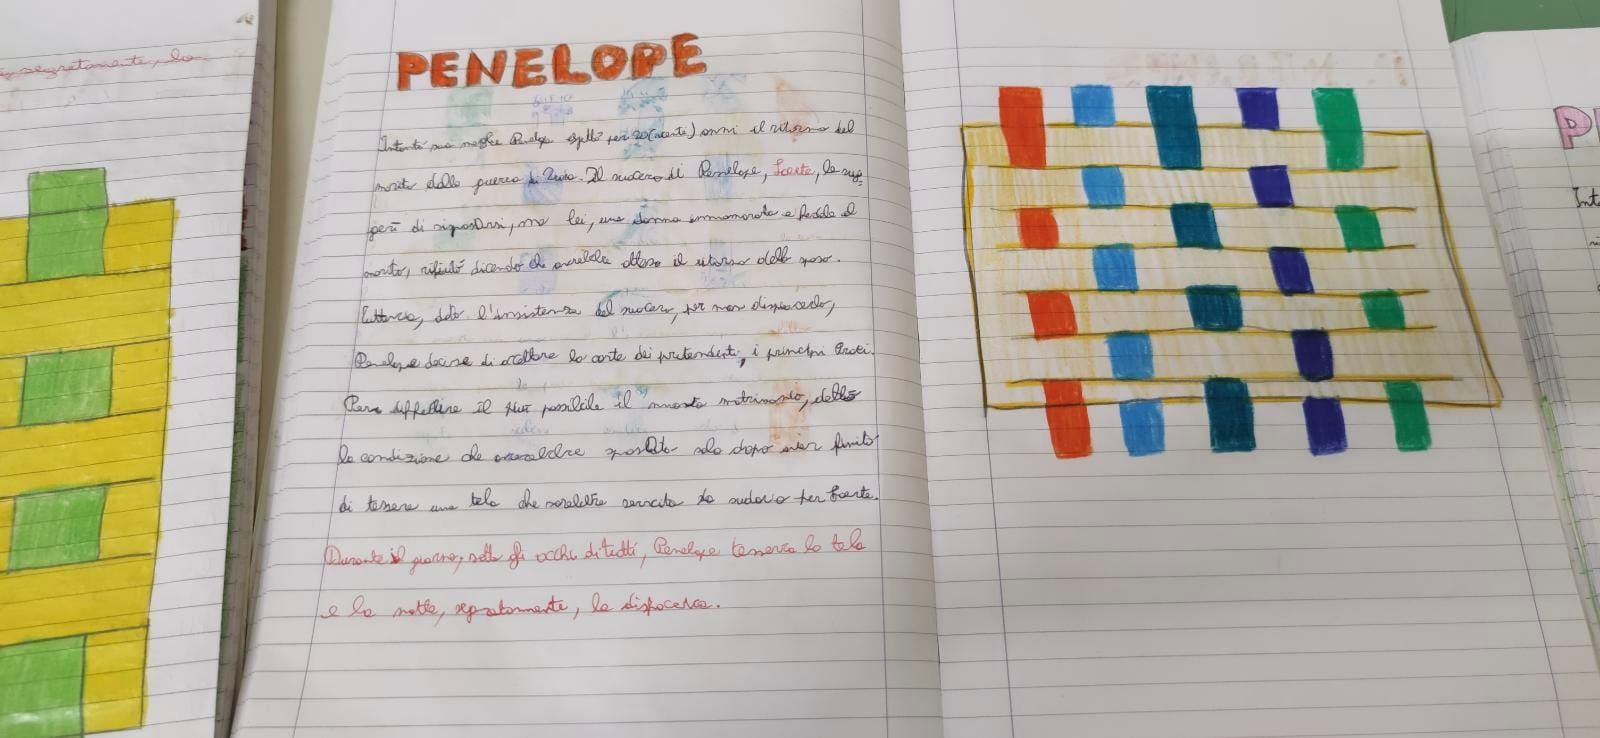 segretamente, la
PENELOPE
Intanto sua moglie Penelope aspettò per 20 (venti) anni il ritorno del
marito dalla guerra di Troia. Il suocero di Penelope, Laerte, le sug-
gerì di risposarsi, ma lei, una donna innamorata e fedele al
marito, rifiutò dicendo che avrebbe atteso il ritorno dello sposo.
Tuttavia, data l'insistenza del suocero, per non dispiacerlo,
Penelope decise di accettare la corte dei pretendenti, i principi Proci.
Per differire il più possibile il nuovo matrimonio, dette
la condizione che avrebbe sposato solo dopo aver finito
di tessere una tela che sarebbe servita da sudario per Laerte.
Durante il giorno, sotto gli occhi di tutti, Penelope tesseva la tela
e la notte, segretamente, la disfaceva.
P
Int